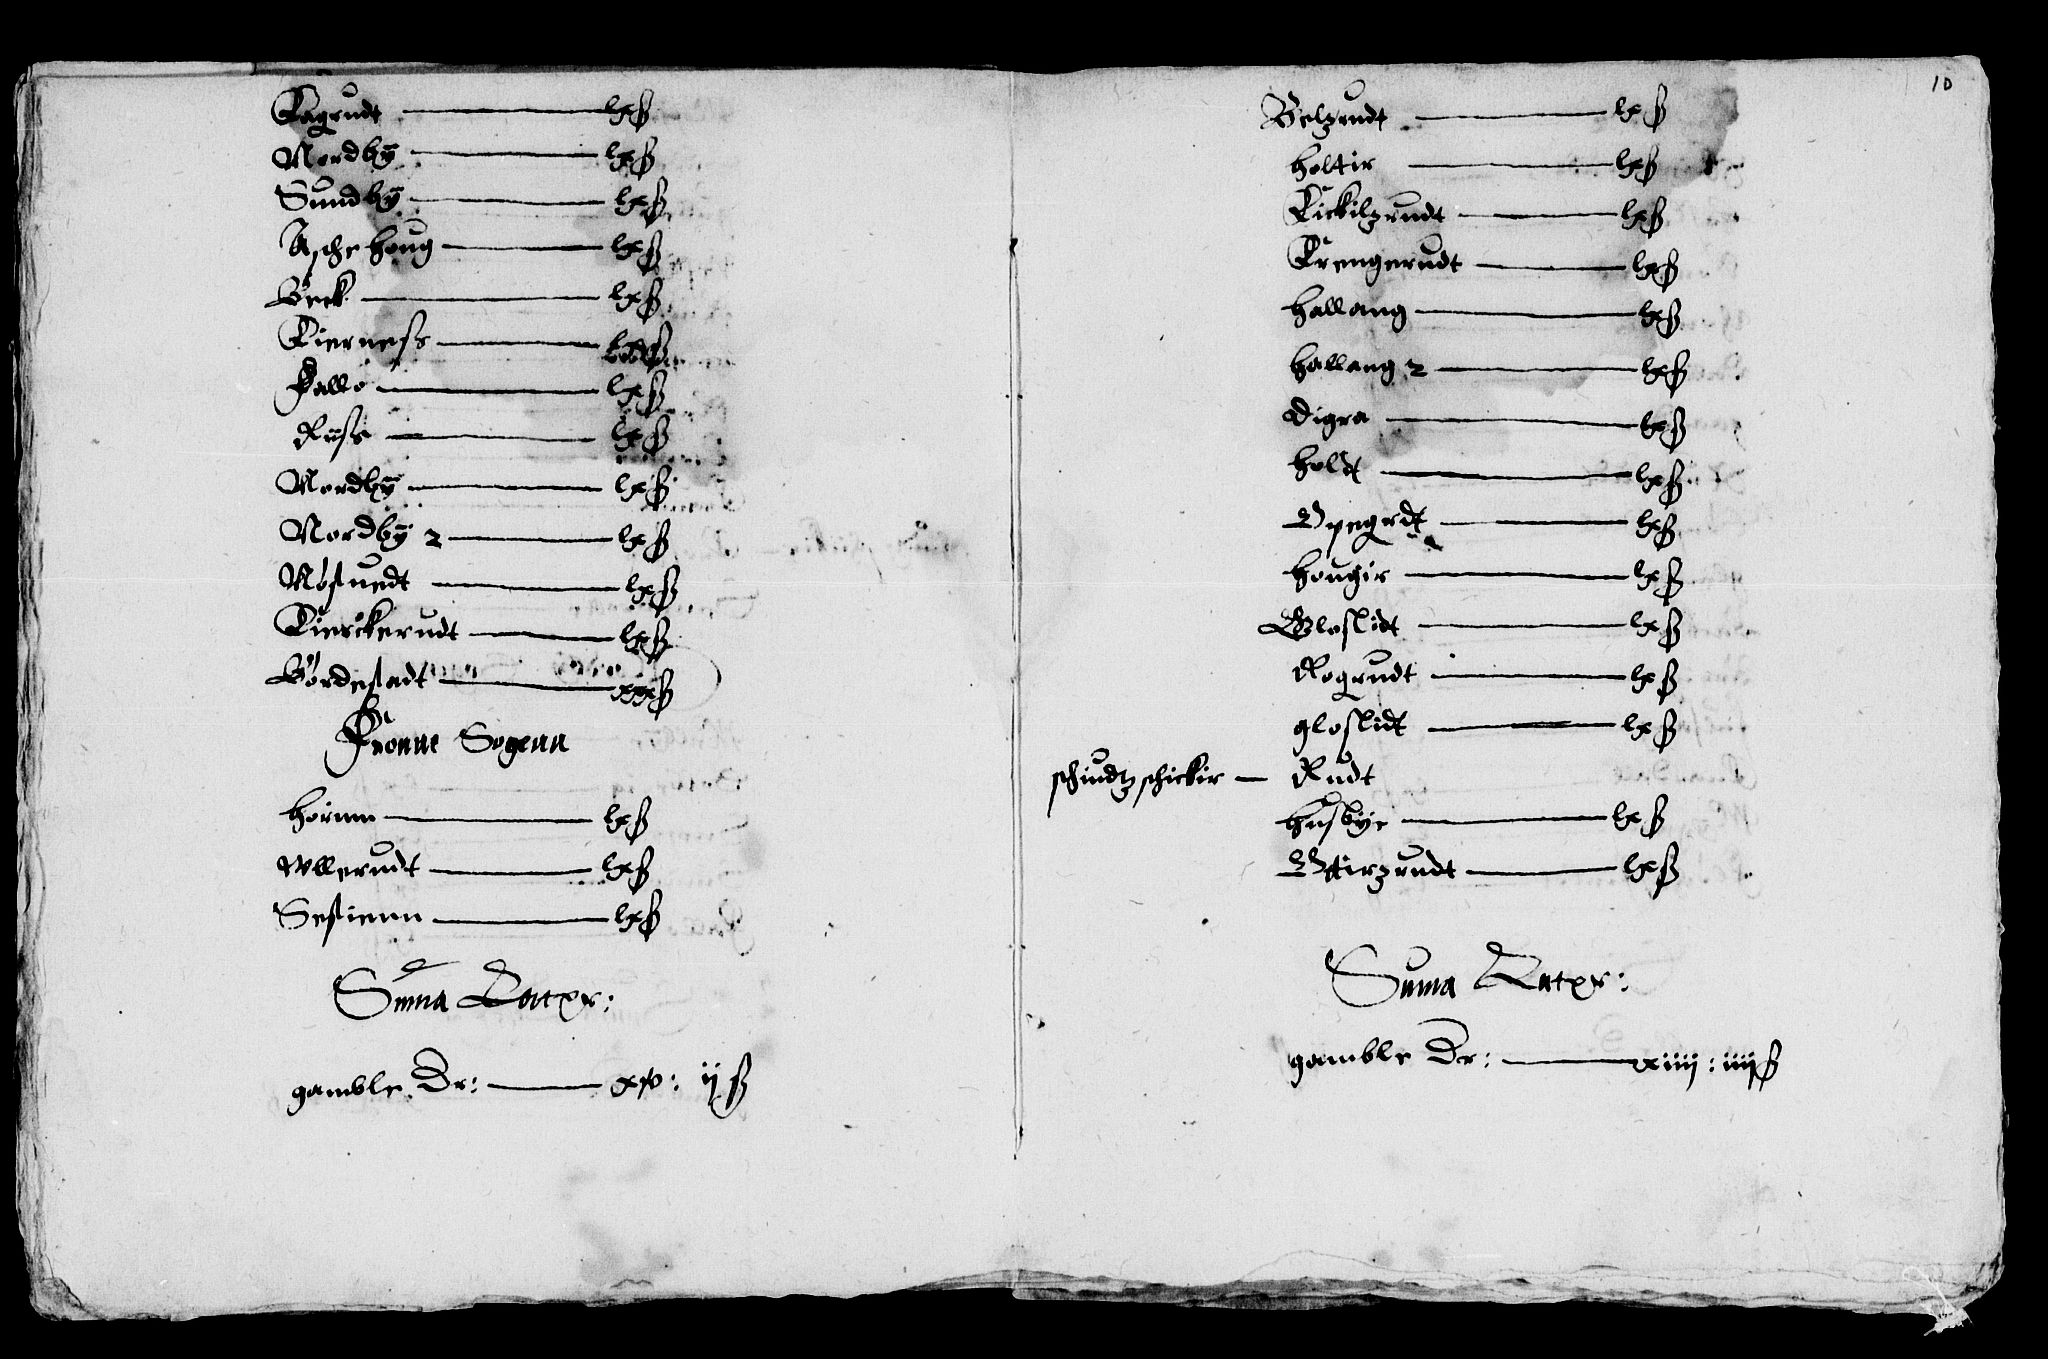 Tagrudt — lxß
Nordbÿ — lxß
Sundbÿ — lxß
Asche houg — lxß
Beck — lxß
Tierness — lxß
Fallo — lxß
Riise — lxß
Nordbÿ — lxß
Nordbÿ 2 — lxß
Møstuedt — lxß
Tierckerudt — lxß
Børdestadt — xxxß
Fronne Sogenn
Horumm — lxß
Wllerudt — lxß
Sestienn — lxß
Suma Latxr:
gamble Dr: — xv: ijß
10
Belgrudt — lxß
holtir — lxß
Tickilgrudt — lxß
Trengerudt — lxß
hallang — lxß
hallang 2 — lxß
Digra — lxß
holdt — lxß
Opegrdt — lxß
hougir — lxß
Gloslidt — lxß
Rogrudt — lxß
gloslidt — lxß
schiudtz schickir — Rudt
husbÿe — lxß
Ottirgrudt — lxß
Suma Latxr:
gamble Dr: — xiiij: iiijß